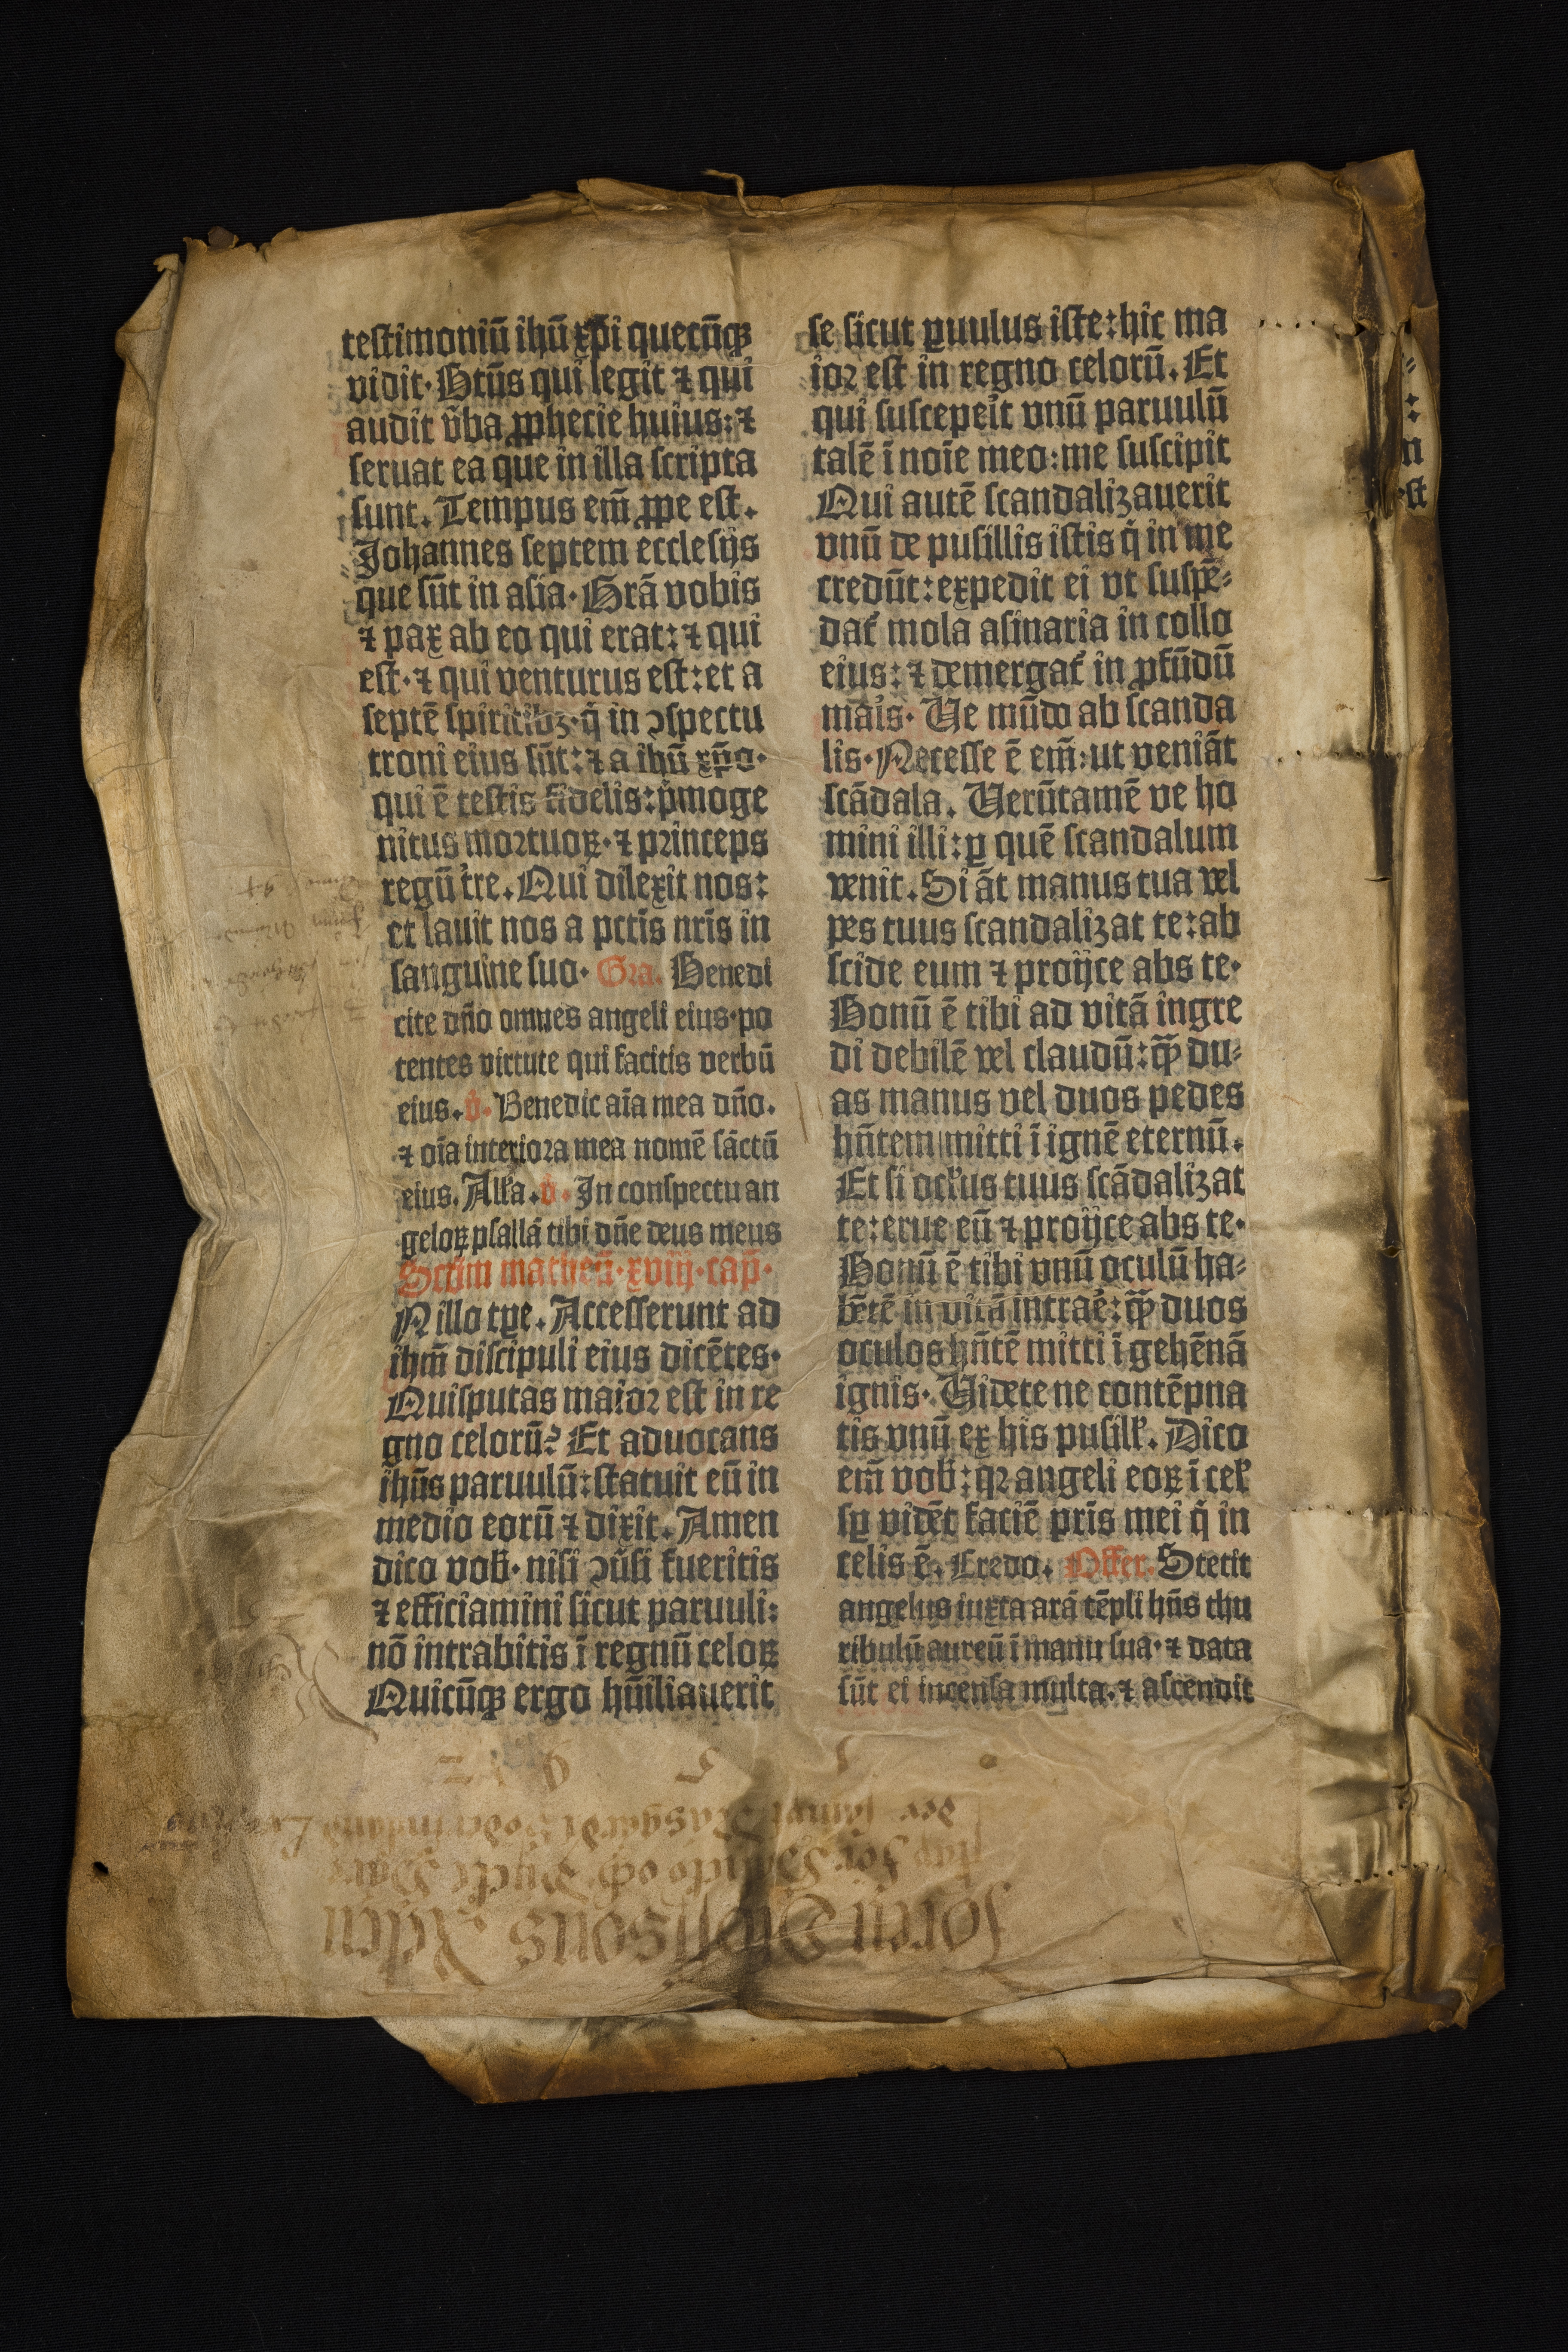 testimoniū ihū xp̄i quecūqꝫ
vidit· Btūs qui legit ⁊ qui
audit v̄ba ꝓphecie huius: ⁊
seruat ea que in illa scripta
sunt. Tempus em̄ ꝓpe est.
Johannes septem ecclesijs
que sūt in asia· Grā vobis
⁊ pax ab eo qui erat: ⁊ qui
est· ⁊ qui venturus est: et a
septē spiritibꝫ· q̇ in ↄspectu
troni eius sūt: ⁊ a ihū xp̄o·
qui ē testis fidelis: ṗmoge
nitus mortuoꝝ· ⁊ princeps
regū tre. Qui dilexit nos:
et lauit nos a pctīs nrīs in
sanguine suo· Gra. Benedi
cite dn̄o omnes angeli eius· po
tentes virtute qui facitis verbū
eius. v̇. Benedic aīa mea dn̄o.
⁊ oīa interiora mea nomē sāctū
eius. Allꝰa. v̇. In conspectu an
geloꝝ psallā tibi dn̄e deus meus
Scd̄m matheū· xviij· cap̄·
N illo tꝑe. Accesserunt ad
ihm̄ discipuli eius dicētes·
Quis putas maior est in re
gno celorū? Et aduocans
ihūs paruulū: statuit eū in
medio eorū ⁊ dixit. Amen
dico vob̄· nisi ↄūsi fueritis
⁊ efficiamini sicut paruuli:
nō intrabitis ī regnū celoꝝ
Quicūqꝫ ergo hūiliauerit
se sicut ꝑuulus iste: hic ma
ior est in regno celorū. Et
qui suscepeit vnū paruulū
talē ī noīe meo: me suscipit
Qui autē scandalizauerit
vnū de pusillis istis q̇ in me
credūt: expedit ei vt suspē⸗
dat̄ mola asinaria in collo
eius: ⁊ demergat̄ in ꝓfūdū
mais· Ve mūdo ab scanda
lis· Necesse ē em̄: ut veniāt
scādala. Verūtamē ve ho
mini illi: ꝑ quē scandalum
venit. Si āt manus tua vel
pes tuus scandalizat te: ab
scide eum ⁊ proijce abs te·
Bonū ē tibi ad vitā ingre
di debilē vel claudū: qꝫ̄ du⸗
as manus vel duos pedes
hn̄tem mitti ī ignē eternū.
Et si oclꝰus tuus scādalizat
te: erue eū ⁊ proijce abs te·
Bonū ē tibi vnū oculū ha⸗
bētē in vitā intrae: qꝫ̄ duos
oculos hn̄tē mitti ī gehēnā
ignis· Videte ne contēpna
tis vnū ex his pusill̄. Dico
em̄ vob̄: qꝛ angeli eoꝝ ī cel̄
sꝑ vidēt faciē pr̄is mei q̇ in
celis ē. Credo. Offer. Stetit
angelus iuxta arā tēpli hn̄s thu
ribulū aureū ī manu sua· ⁊ data
sūt ei incensa multa. ⁊ ascendit
n
est